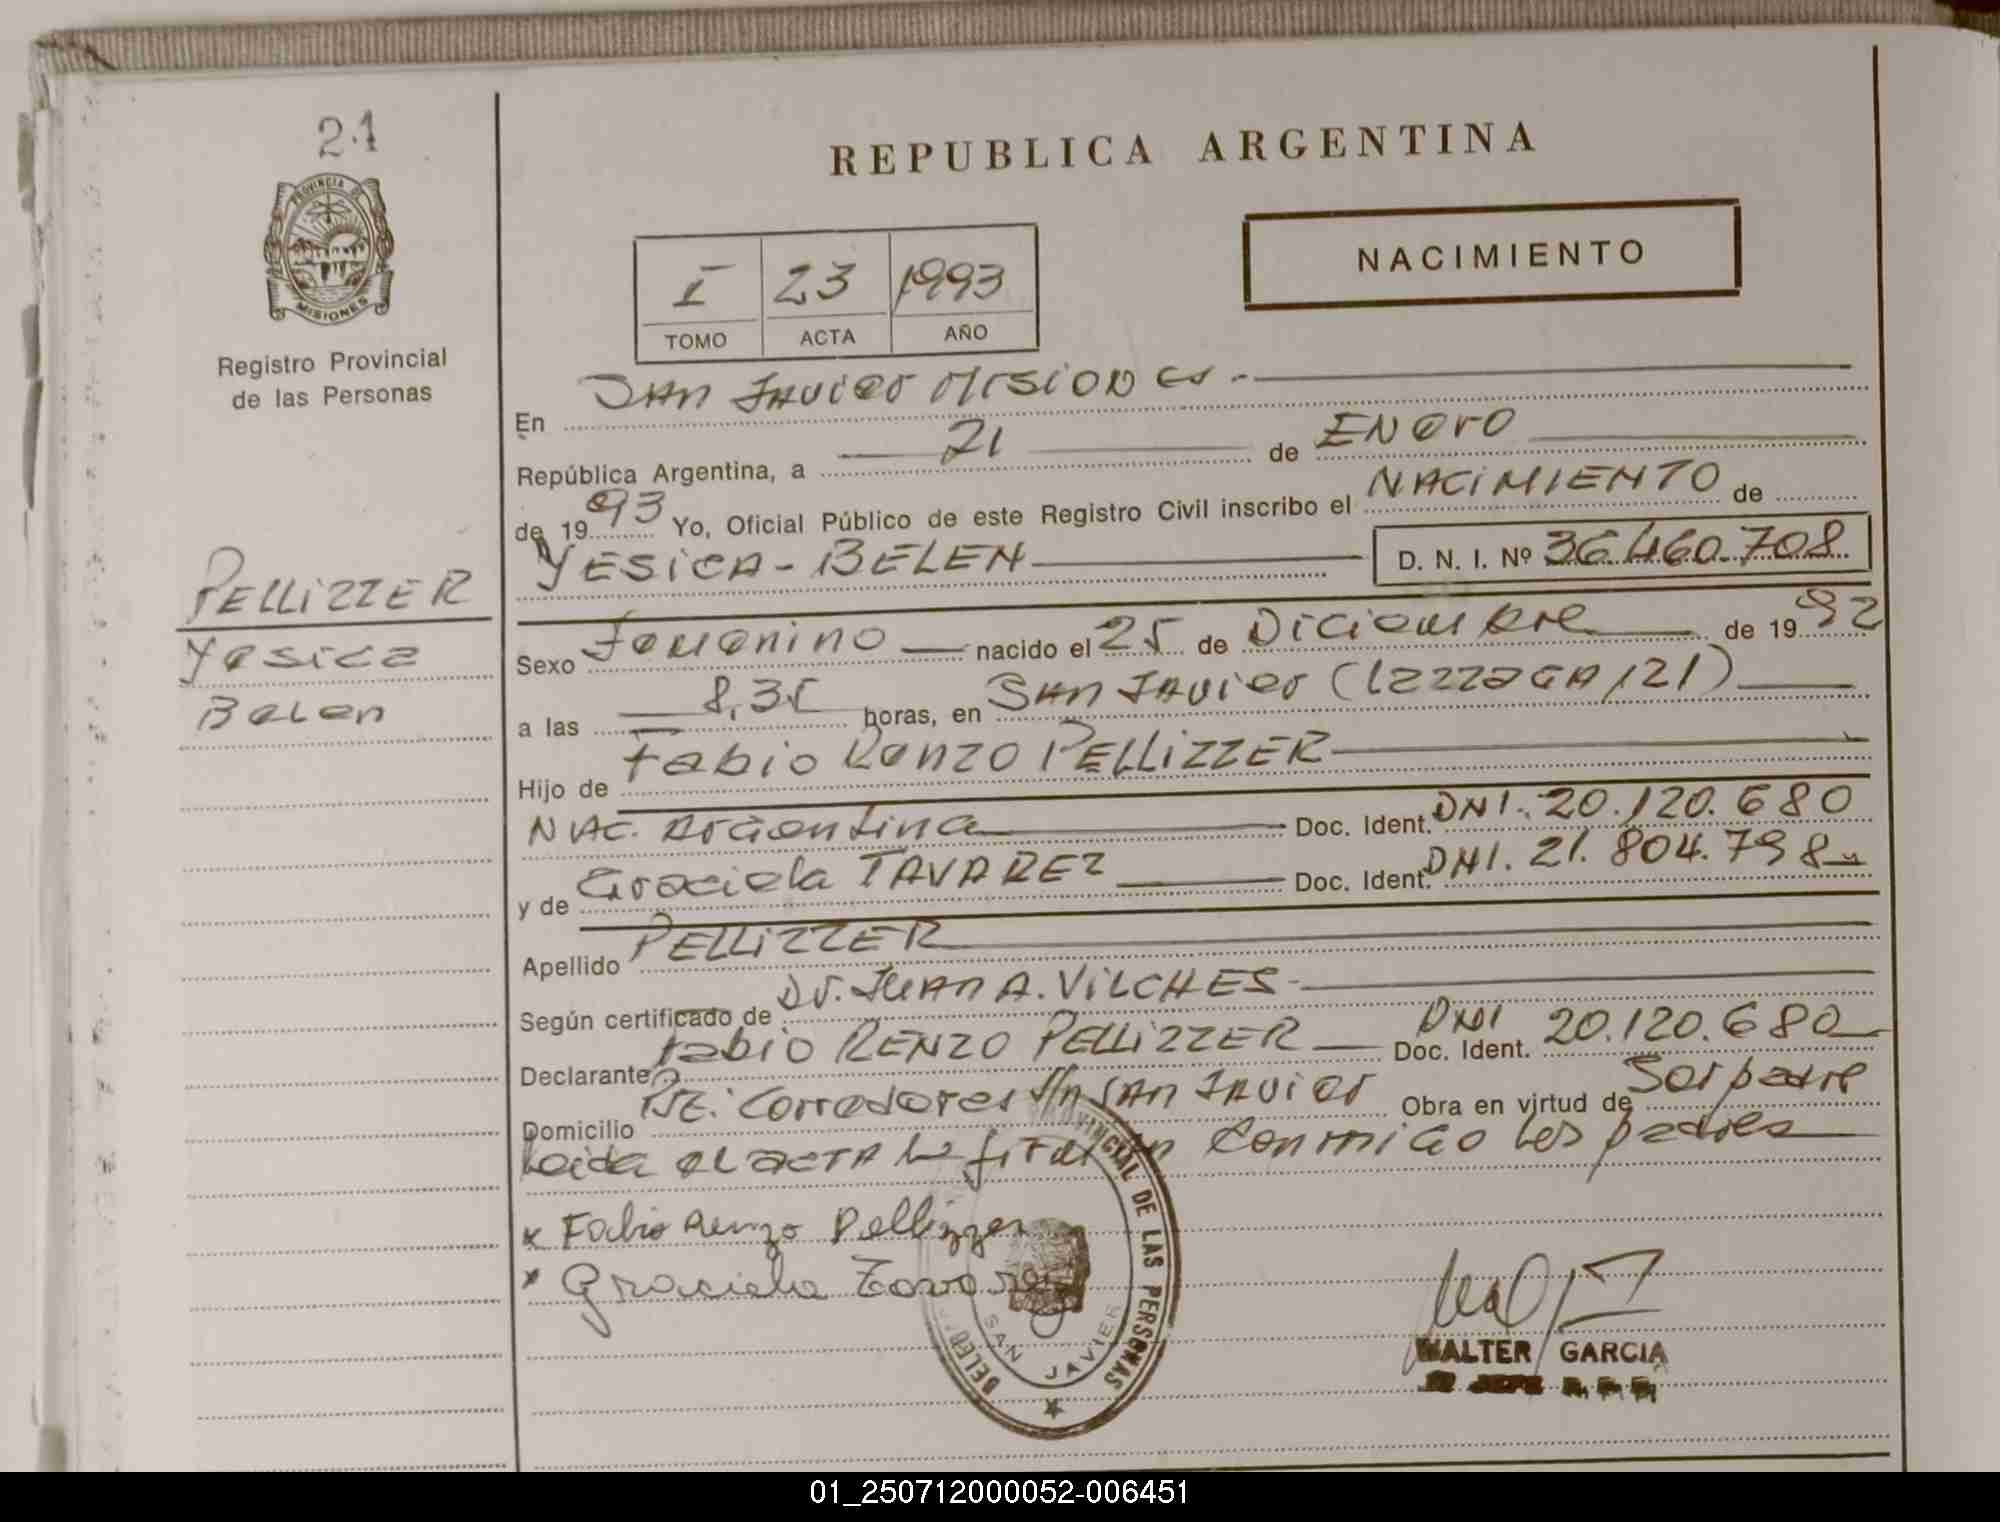 21
PROVINCIA DE
MISIONES
Registro Provincial
de las Personas
PELLIZZER
Yesica
Belen
REPUBLICA ARGENTINA
NACIMIENTO
I 23 1993
TOMO ACTA AÑO
En SAN JAVIER MISIONES.-
República Argentina, a 21 de ENERO
de 1993 Yo, Oficial Público de este Registro Civil inscribo el NACIMIENTO de
YESICA-BELEN D. N. I. Nº 36.460.708
Sexo Femenino nacido el 25 de Diciembre de 1992
a las 8,35 horas, en SAN JAVIER (LIZZAGA 121)
Hijo de Fabio Renzo PELLIZZER
NAC. Argentina Doc. Ident. DNI. 20.120.680
y de Graciela TAVAREZ Doc. Ident. DNI. 21.804.798
Apellido PELLIZZER
Según certificado de Dr. JUAN A. VILCHES-
Declarante Fabio RENZO PELLIZZER Doc. Ident. DNI 20.120.680
Domicilio Pje. Corredores SAN JAVIER Obra en virtud de Ser padre
Leida el ACTA la firman conmigo los padres
x Fabio Renzo Pellizzer
x Graciela Tavarez
PROVINCIAL DE LAS PERSONAS
SAN JAVIER
WALTER GARCIA
01_250712000052-006451